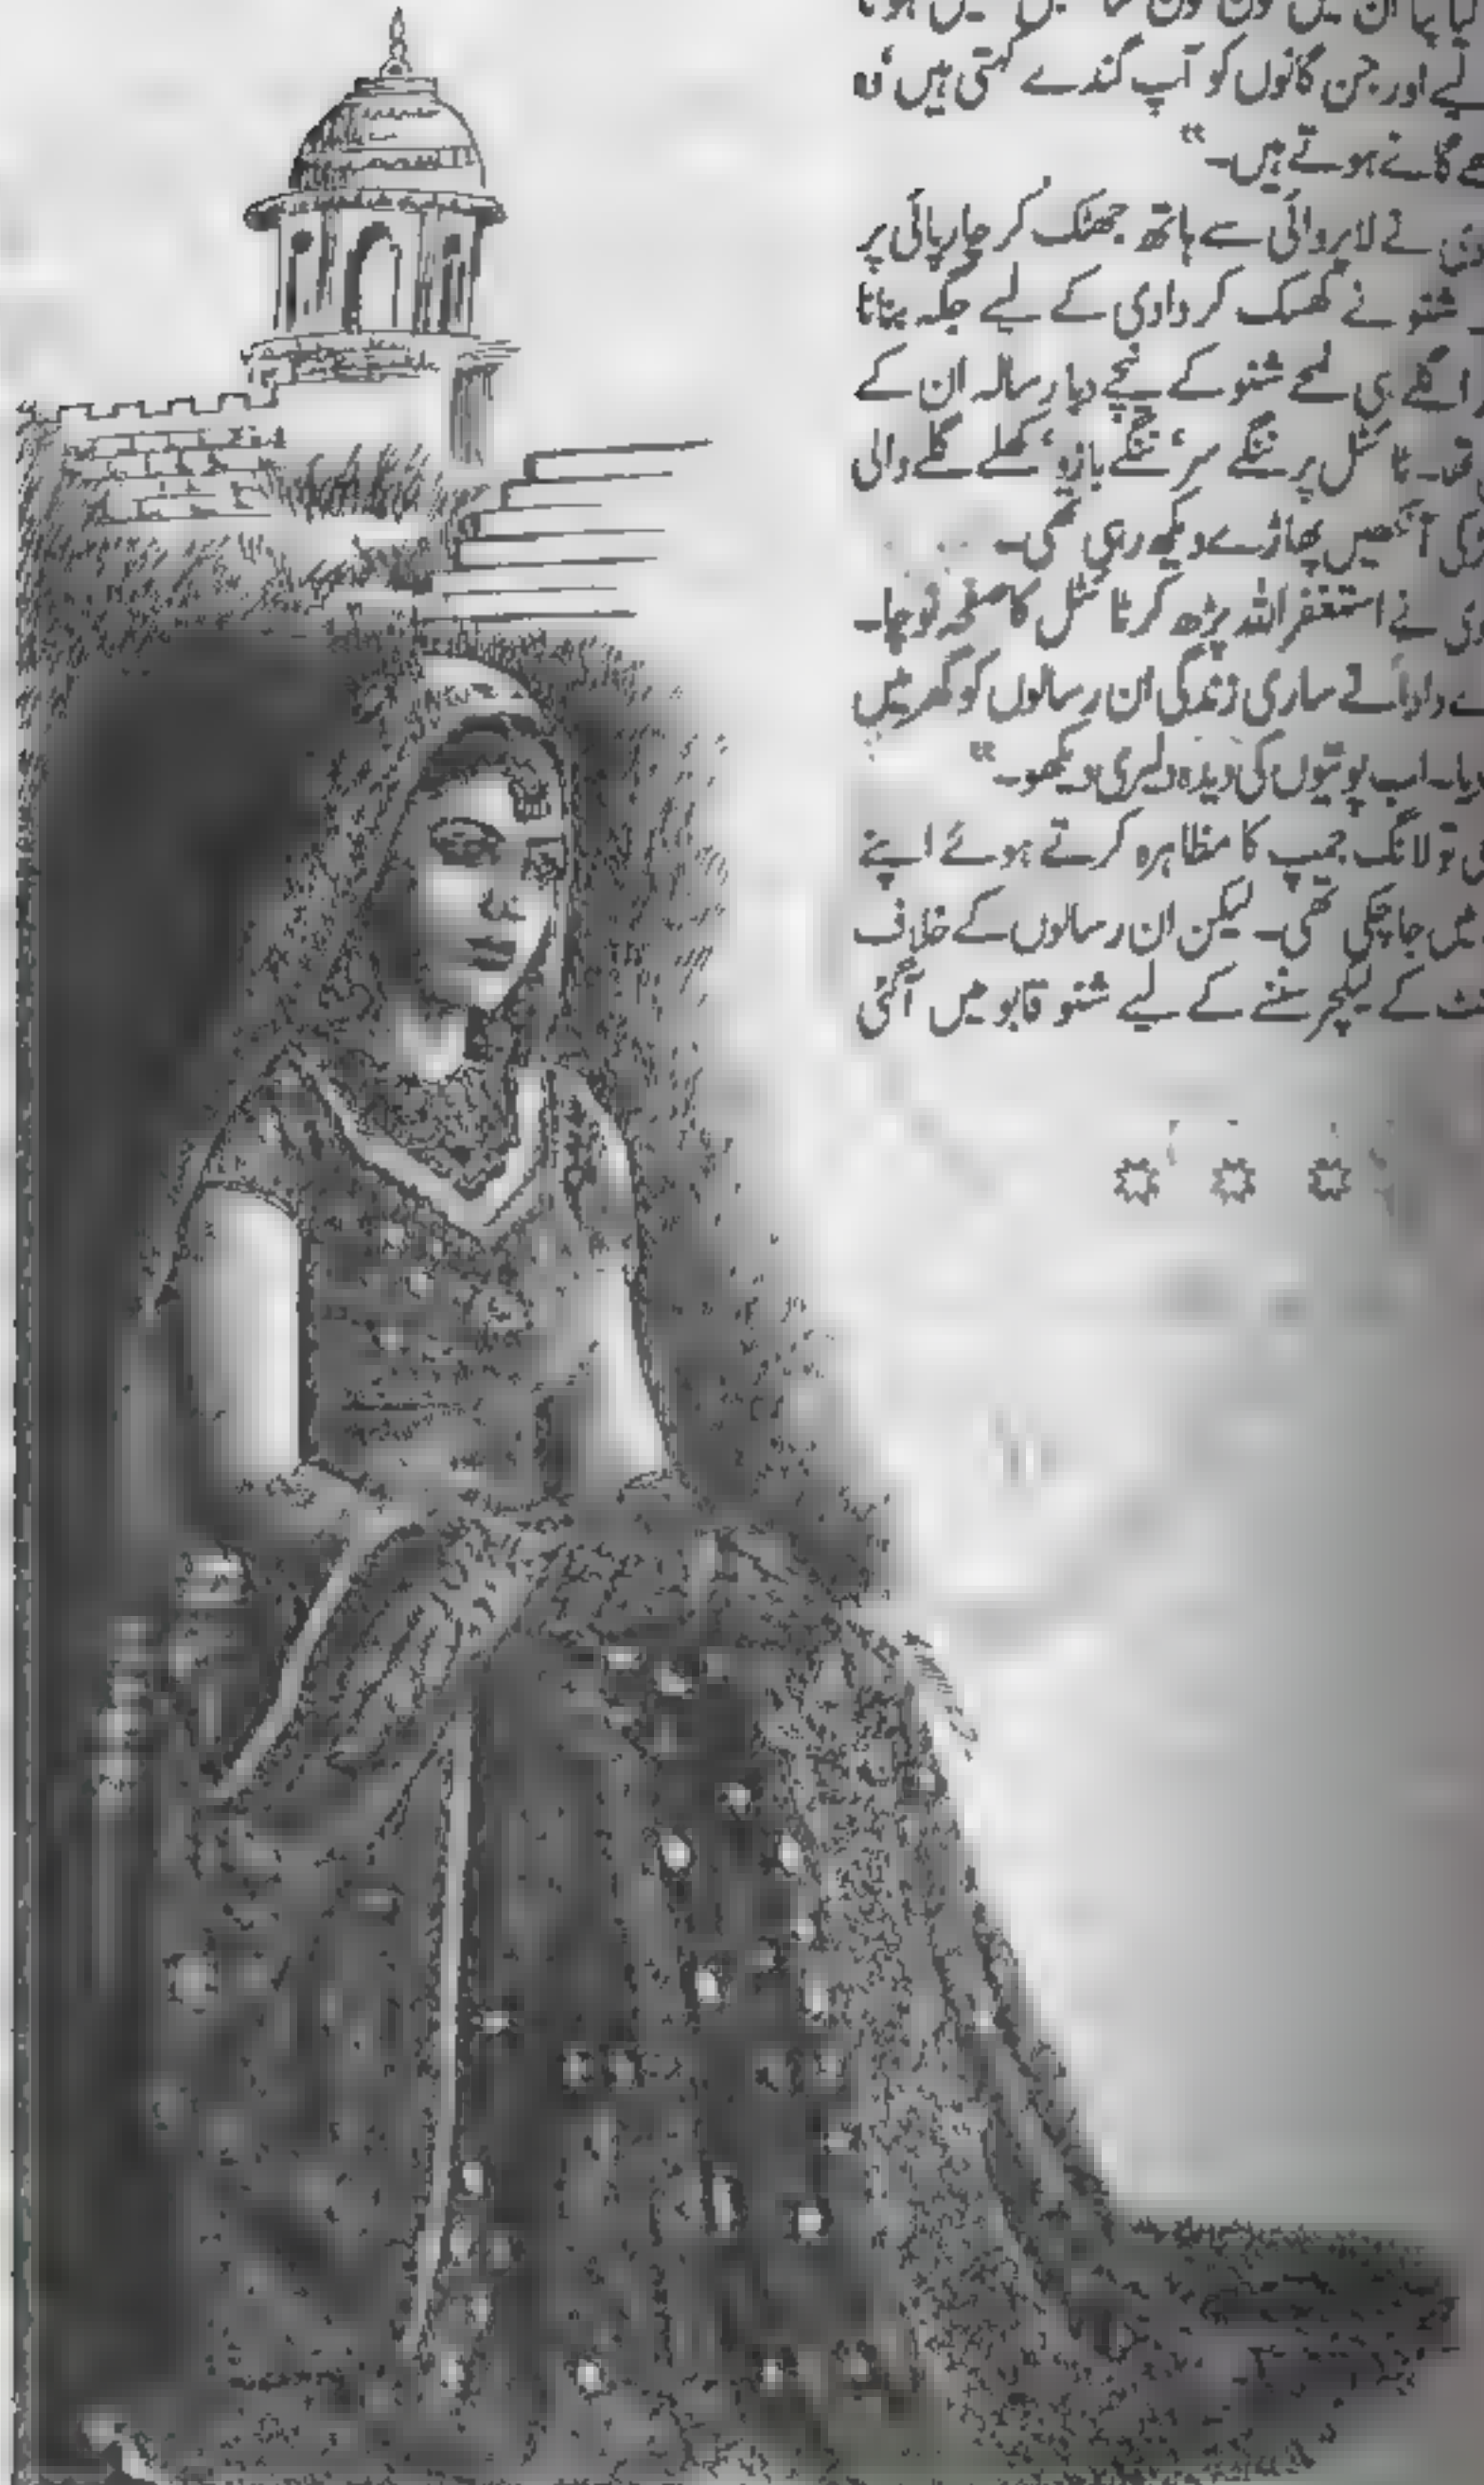 لیے اور جن گانوں کو آپ گندے کہتی ہیں‘ وہ
گانے ہوتے ہیں۔“
نے لاپروائی سے ہاتھ جھٹک کر چارپائی پر
شنو نے کھسک کر دادی کے لیے جگہ بنانا
اگلے ہی لمحے شنو کے نیچے دبا رسالہ ان کے
تھا۔ ٹائٹل پر ننگے سر‘ ننگے بازو‘ کھلے گلے والی
آنکھیں پھاڑے دیکھ رہی تھی۔
نے استغفراللہ پڑھ کر ٹائٹل کا صفحہ نوچا۔
دادا نے ساری زندگی ان رسالوں کو گھر میں
دیا۔ اب پوتیوں کی دیدہ دلیری دیکھو۔“
تو لانگ جمپ کا مظاہرہ کرتے ہوئے اپنے
میں جا چکی تھی۔ لیکن ان رسالوں کے خلاف
کے لیکچر سننے کے لیے شنو قابو میں آ گئی